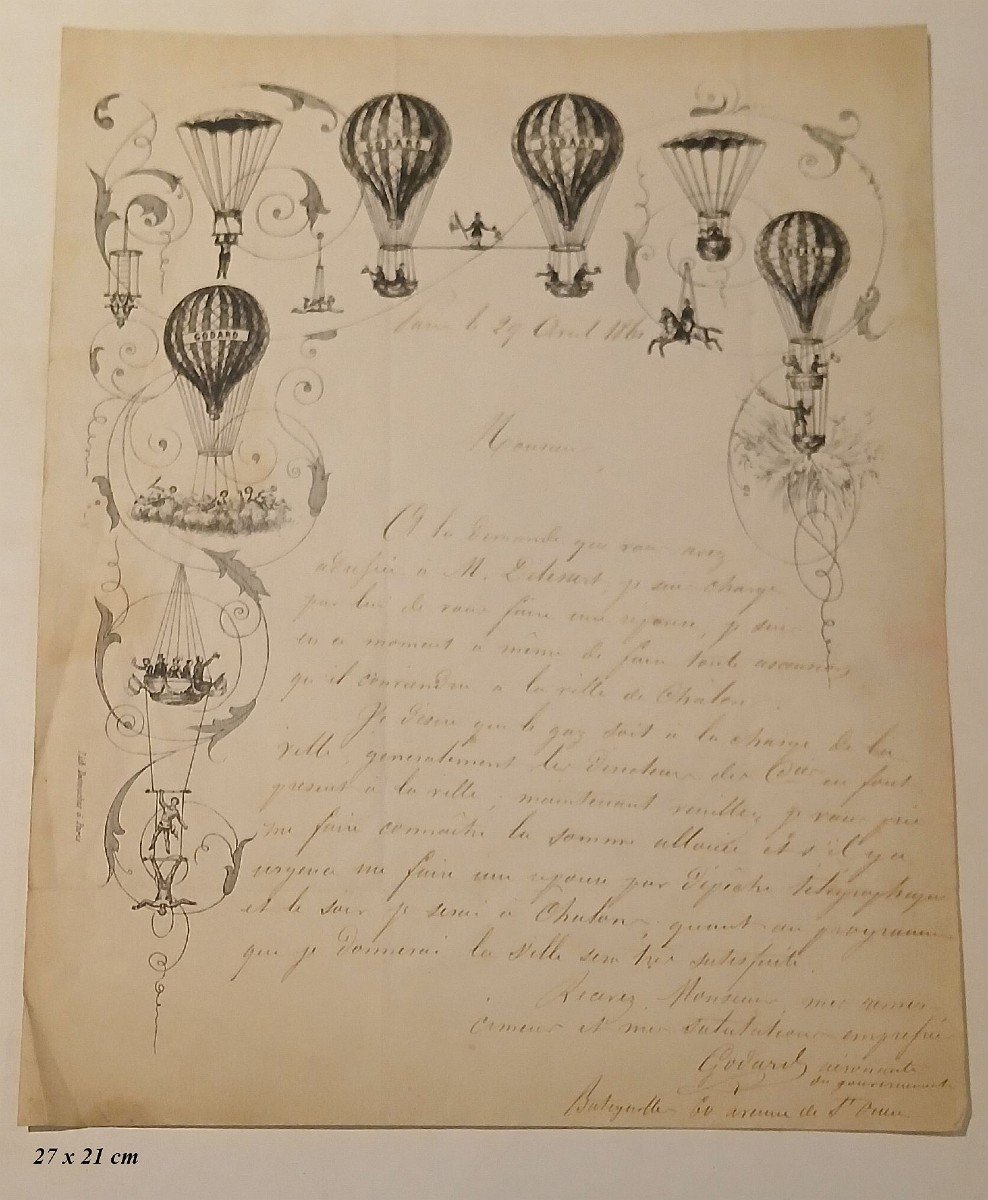 GODARD
GODARD
GODARD
GODARD
le 29 Avril
Monsieur,
A la demande que vous avez
adressée à M. je suis chargé
par lui de vous faire une réponse, je suis
en ce moment à même de faire toute ascension
qu'il conviendra à la ville de Châlon.
Je désire que le gaz soit à la charge de la
ville, generalement les Directeurs des Cies en font
présent à la ville; maintenant veuillez je vous prie
me faire connaître la somme allouée et s'il y a
urgence me faire une réponse par dépêche télégraphique
et le soir je serai à Chalon, quant au programme
que je donnerai la Ville sera très satisfaite.
Recevez, Monsieur, mes remer-
ciments et mes salutations empressées
Godard aéronaute
du gouvernement
Batignolles 60 avenue de St Ouen
Lith. à Paris
27 x 21 cm